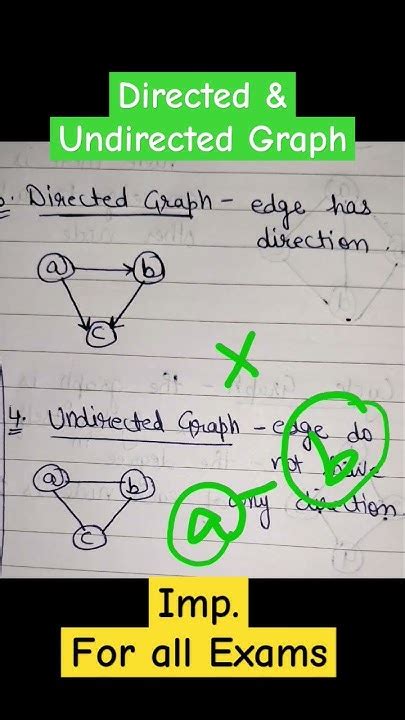 Directed &
Undirected Graph
Directed Graph - edge has
direction.
a b
c
X
4. Undirected Graph - edge do
not have
any direction.
a b
c
a - b
Imp.
For all Exams